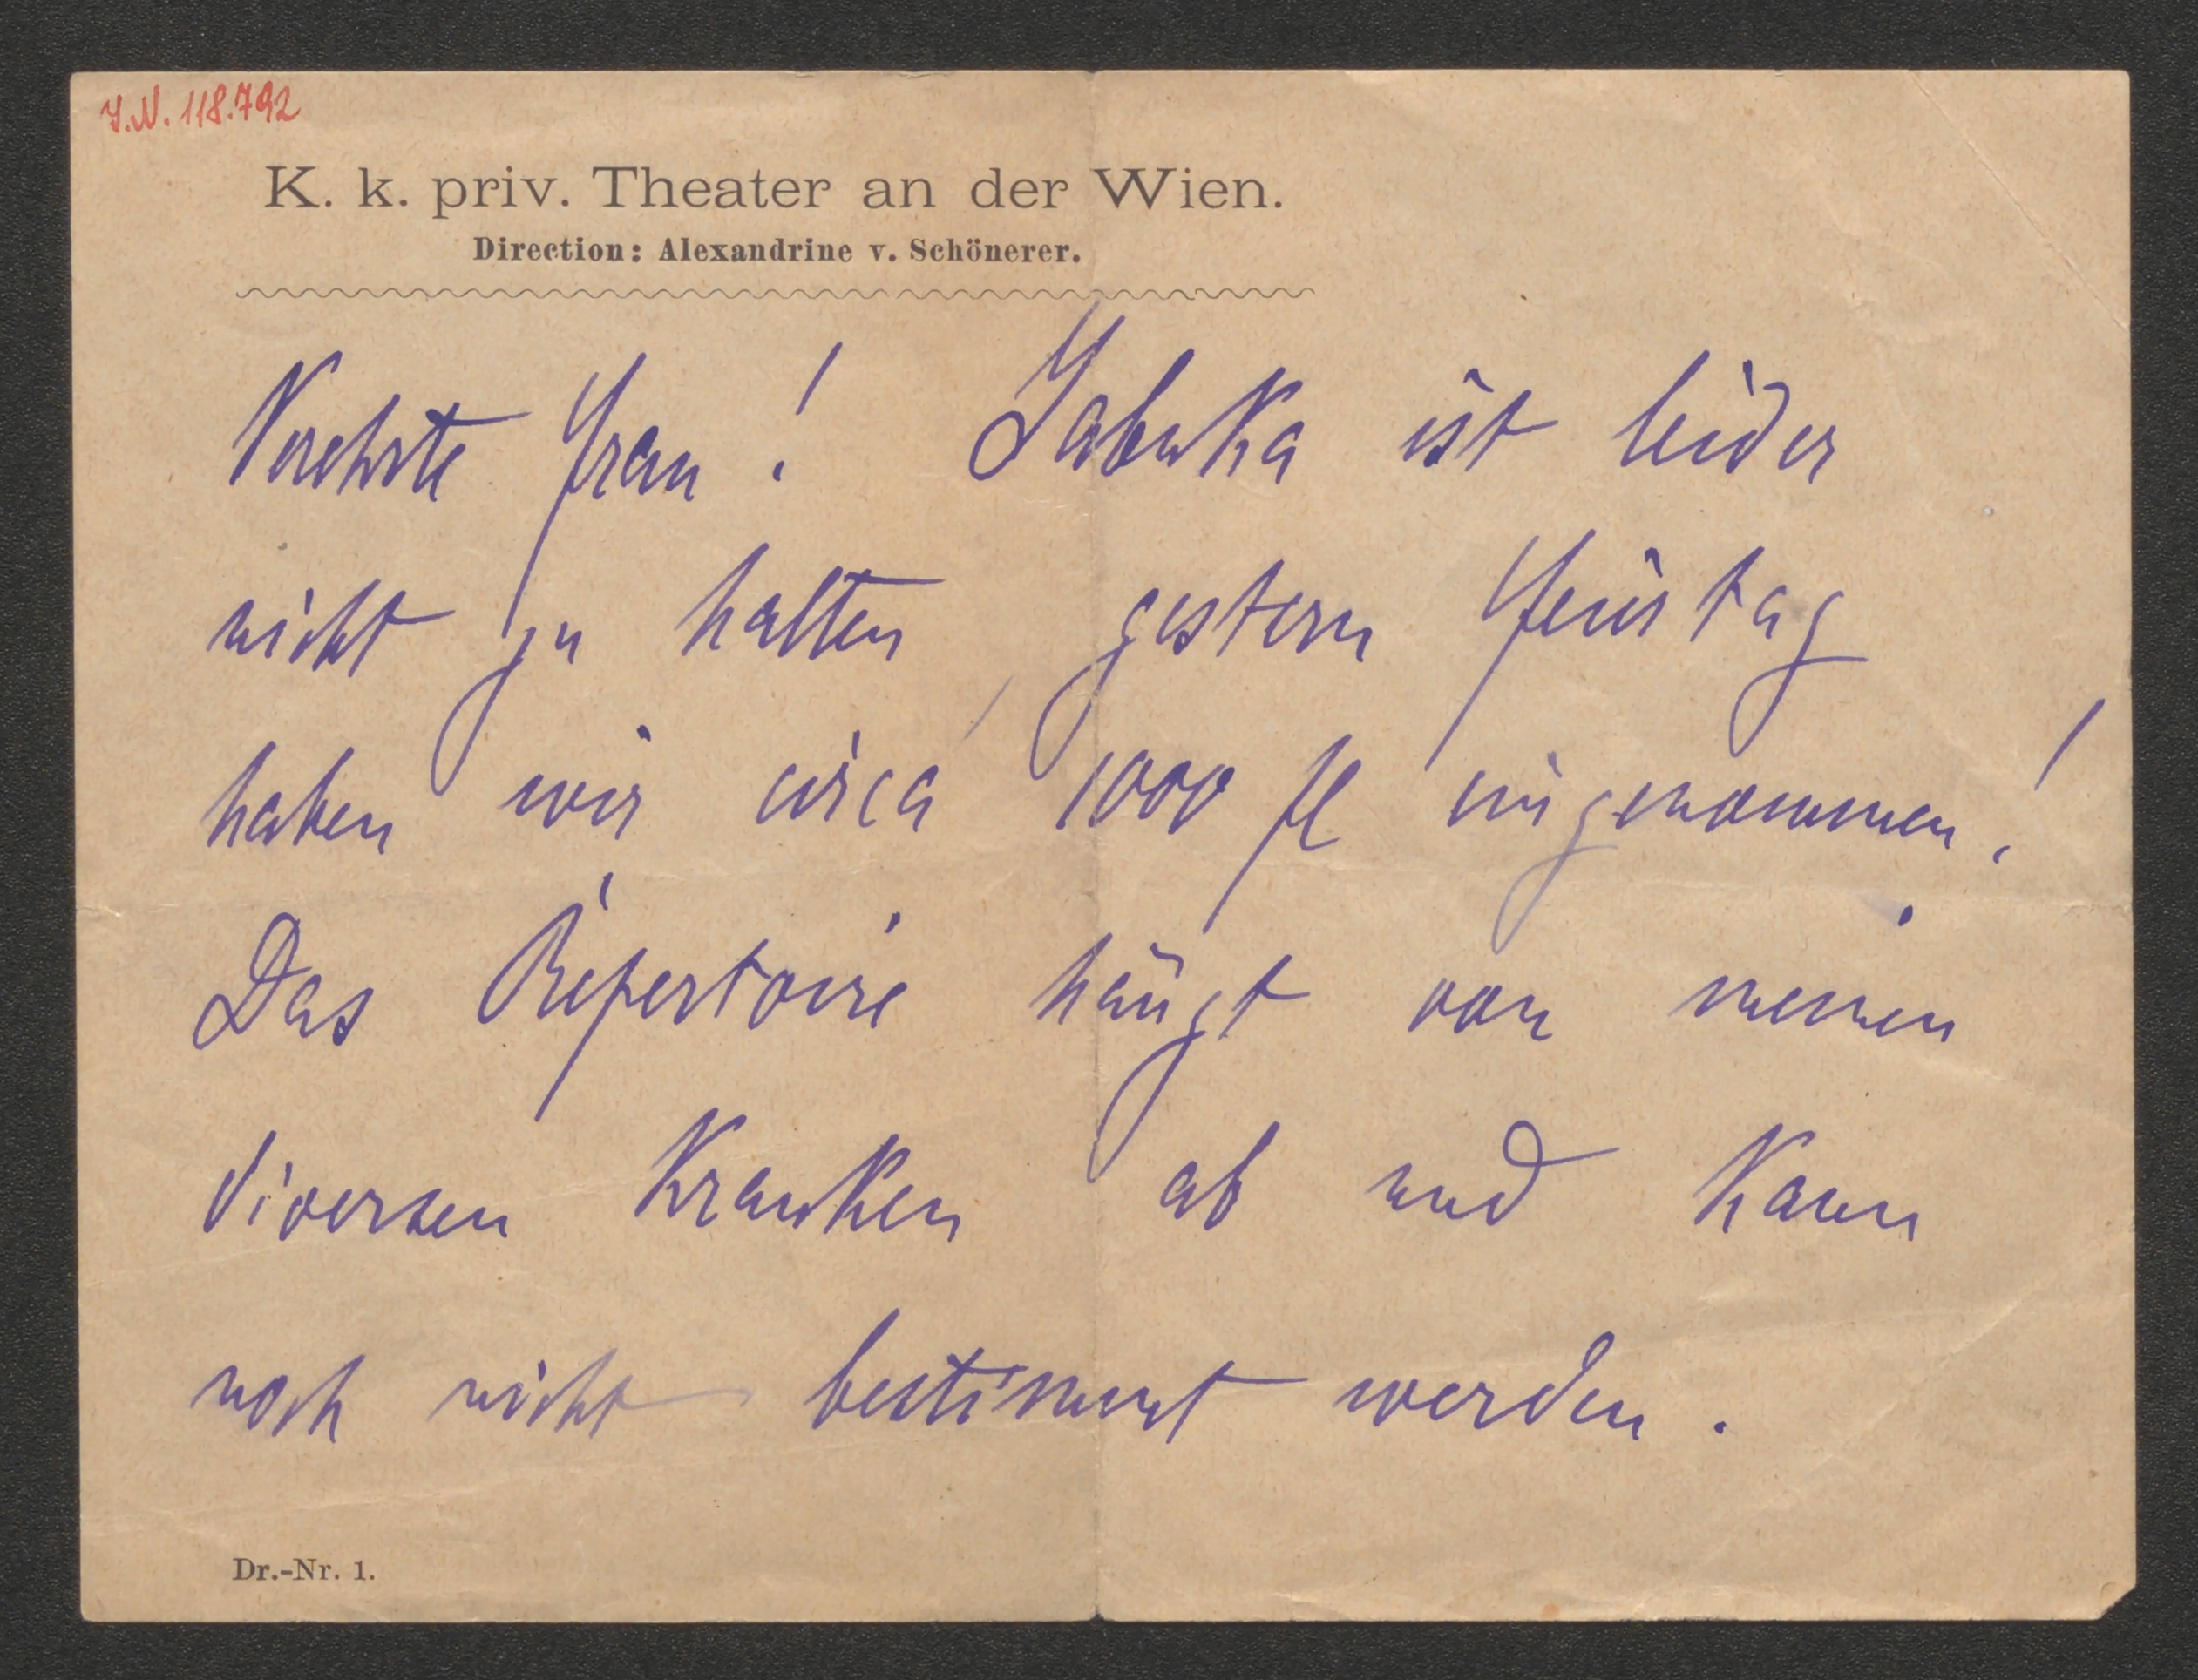 I.N. 118.792
K. k. priv. Theater an der Wien.
Direction: Alexandrine v. Schönerer.
Verehrte Frau! Jabuka ist leider
nicht zu halten, gestern Feiertag
haben wir circa 1000 fl eingenommen!
Das Repertoire hängt von meinen
diversen Kranken ab und kann
noch nicht bestimmt werden.
Dr.-Nr. 1.